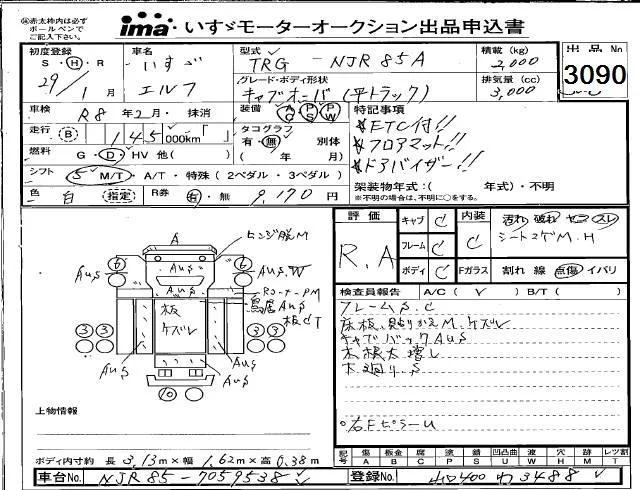 ㊟赤太枠内は必ず
ボールペンで
ご記入下さい。
ima いすゞモーターオークション出品申込書
初度登録 S・H・R 29/1月
車名 いすゞ エルフ
型式 TRG - NJR85A
グレード・ボディ形状 キャブオーバ(平トラック)
積載(kg) 2,000
排気量(cc) 3,000
出品No 3090
車検 R8年2月・抹消
装備 AC PS PW
走行 (B) 145,000km「 」
タコグラフ 有・無 別体 ( 年 月)
燃料 G・D・HV 他( )
シフト 5 M/T・A/T・特殊(2ペダル・3ペダル)
色 白 (指定) R券 有・無 9,170円
特記事項
★ETC付!!
★フロアマット!!
★ドアバイザー!!
架装物年式:( 年式)・不明
※不明の場合は、不明に○をする。
評価 R.A
キャブ C
フレーム C
ボディ C
内装 C
汚れ 破れ コゲ スレ
シートコゲM.H
Fガラス 割れ 線 点傷 イバリ
検査員報告 A/C( ✓ ) B/T( )
フレームS.C
床板貼りかえM.ケズレ
キャブバックAUS
木根太増し
下廻りS
○右FピラーU
A
ヒンジ脱M
AUS
AUS.W
AUS
AUS
RコーナーPM
鳥居AUS
板CT
板
ケズレ
6 6
3 3 3 3
AUS
AUS
10
上物情報
ボディ内寸約 長 3.13m×幅 1.62m×高 0.38m
記号 傷A 板金B 腐C 塗P 錆S 凹凸曲U 波W 穴H 跡M レツ割T
車台No. NJR85-7059538
登録No. 山口400 わ3488